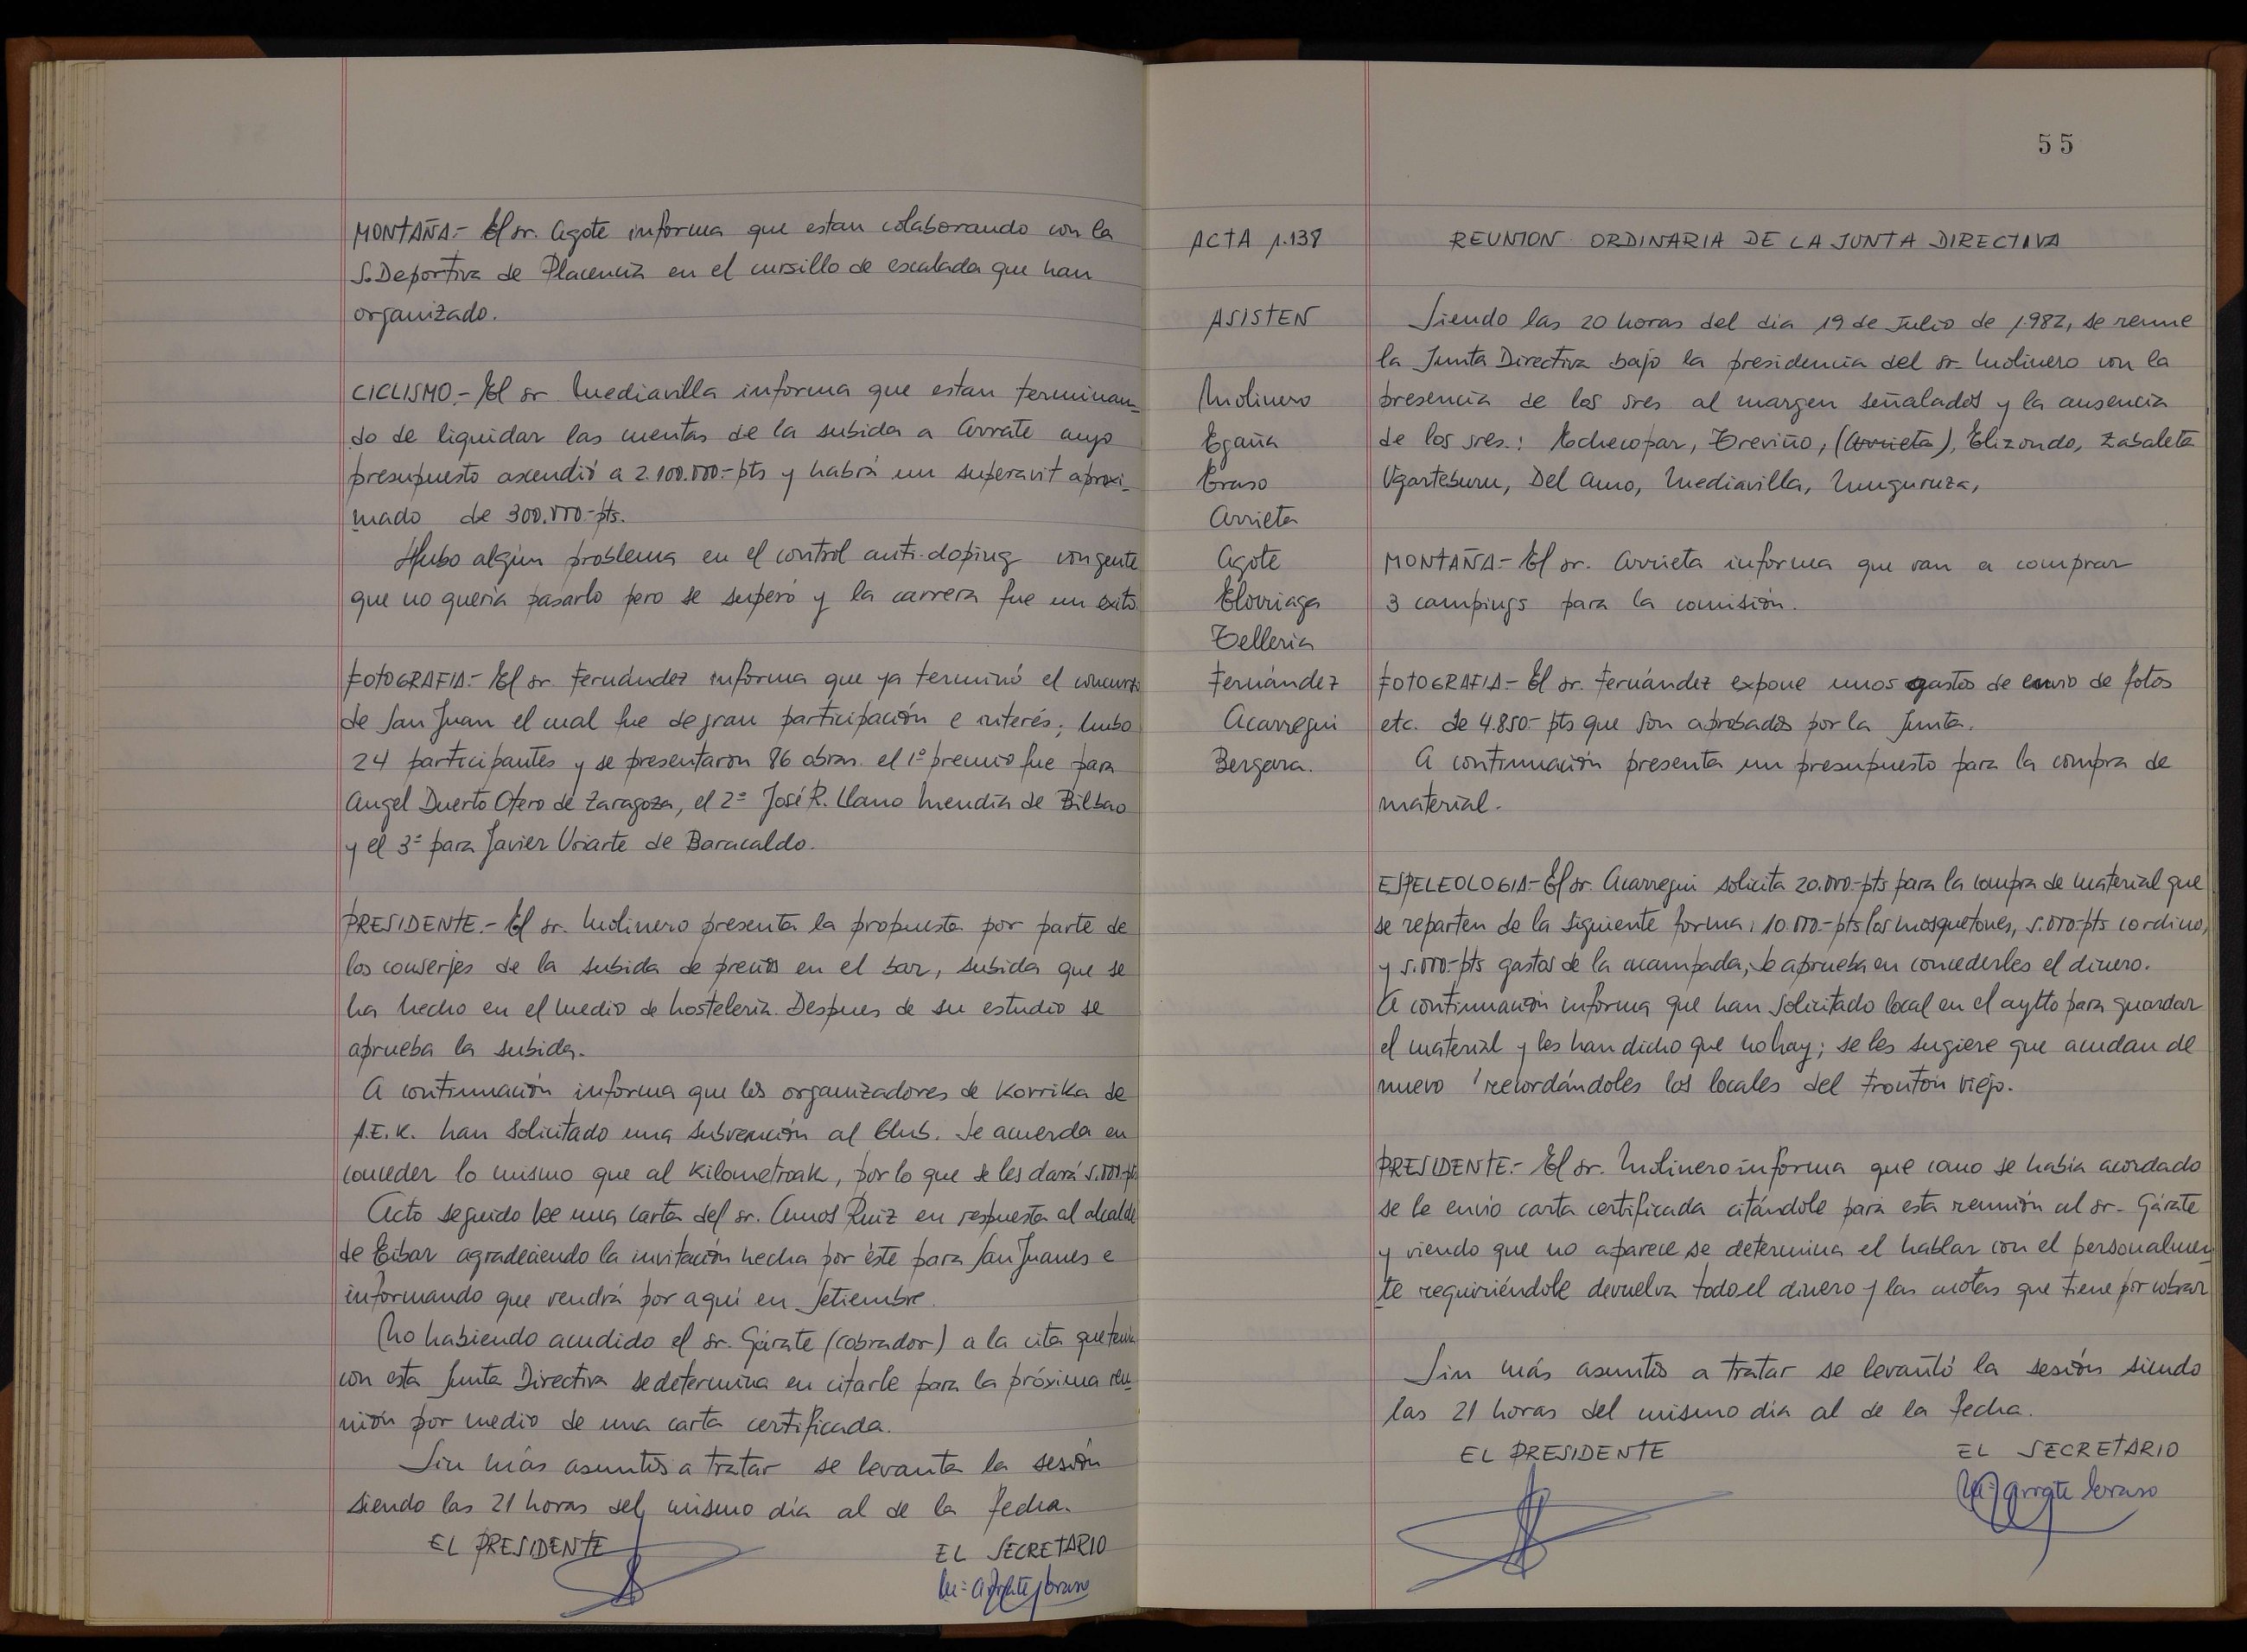 MONTAÑA.- El sr. Agote informa que estan colaborando con la
S.Deportiva de Placencia en el cursillo de escalada que han
organizado.
CICLISMO.- El sr Mediavilla informa que estan terminan-
do de liquidar las cuentas de la subida a Arrate cuyo
presupuesto ascendió a 2.100.000.-pts y habrá un superavit aproxi-
mado de 300.000.-pts.
Hubo algún problema en el control anti-doping con gente
que no quería pasarlo pero se superó y la carrera fue un exito
FOTOGRAFIA.- El sr. Fernández informa que ya terminó el concurso
de San Juan el cual fue de gran participación e interés; hubo
24 participantes y se presentaron 86 obras. el 1º premio fue para
Angel Duerto Otero de Zaragoza, el 2º José R. Llano Mendia de Bilbao
y el 3º para Javier Uriarte de Baracaldo.
PRESIDENTE.- El sr. Molinero presenta la propuesta por parte de
los conserjes de la subida de precios en el bar, subida que se
ha hecho en el medio de hosteleria. Despues de su estudio se
aprueba la subida.
A continuación informa que los organizadores de Korrika de
A.E.K. han solicitado una subvención al Club. Se acuerda en
conceder lo mismo que al Kilometroak, por lo que se les dará 5.000.-pts
Acto seguido lee una carta del sr. Amos Ruiz en respuesta al alcalde
de Eibar agradeciendo la invitación hecha por éste para San Juanes e
informando que vendrá por aquí en Setiembre.
No habiendo acudido el sr. Gárate (cobrador) a la cita que tenía
con esta Junta Directiva se determina en citarle para la próxima reu-
nión por medio de una carta certificada.
Sin más asuntos a tratar se levanta la sesión
siendo las 21 horas del mismo día al de la fecha.
EL PRESIDENTE EL SECRETARIO
55
ACTA 1.138 REUNION ORDINARIA DE LA JUNTA DIRECTIVA
ASISTEN
Molinero
Egaña
Eraso
Arrieta
Agote
Elorriaga
Telleria
Fernández
Acarregui
Bergara.
Siendo las 20 horas del día 19 de Julio de 1.982, se reune
la Junta Directiva bajo la presidencia del sr. Molinero con la
presencia de los sres al margen señalados y la ausencia
de los sres.: Echecopar, Treviño, (Arrieta), Elizondo, Zabaleta
Ugarteburu, Del Amo, Mediavilla, Munguruza,
MONTAÑA.- El sr. Arrieta informa que van a comprar
3 campings para la comisión.
FOTOGRAFIA.- El sr. Fernández expone unos gastos de envio de fotos
etc. de 4.850.- pts que son aprobados por la Junta.
A continuación presenta un presupuesto para la compra de
material.
ESPELEOLOGIA.- El sr. Acarregui solicita 20.000.-pts para la compra de material que
se reparten de la siguiente forma: 10.000.-pts los mosquetones, 5.000.-pts cordino,
y 5.000.-pts gastos de la acampada, se aprueba en concederles el dinero.
A continuación informa que han solicitado local en el aytto para guardar
el material y les han dicho que no hay; se les sugiere que acudan de
nuevo recordándoles los locales del Frontón Viejo.
PRESIDENTE.- El sr. Molinero informa que como se había acordado
se le envío carta certificada citándole para esta reunión al sr. Gárate
y viendo que no aparece se determina el hablar con el personalmen-
te requiriéndole devuelva todo el dinero y las cuotas que tiene por cobrar
Sin más asuntos a tratar se levantó la sesión siendo
las 21 horas del mismo día al de la fecha.
EL PRESIDENTE EL SECRETARIO